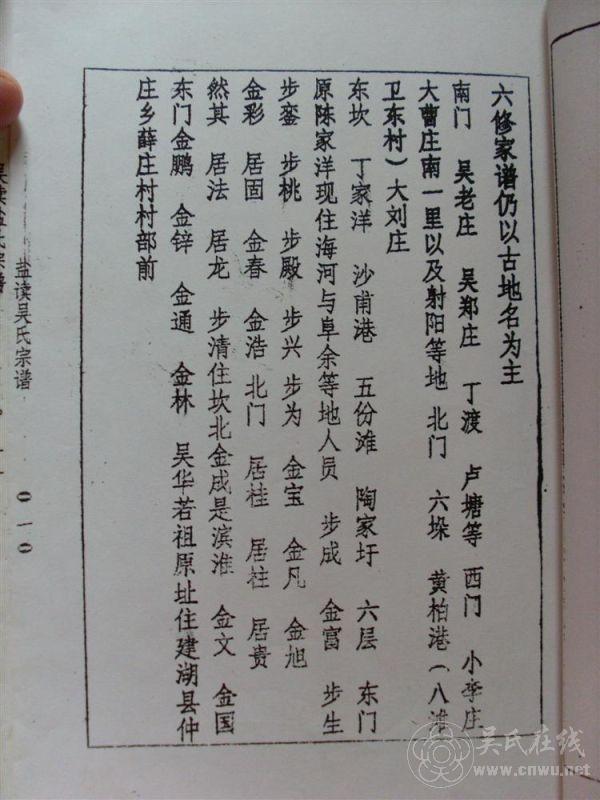 六修家谱仍以古地名为主
南门 吴老庄 吴郑庄 丁渡 卢塘等 西门 小李庄
大曹庄南一里以及射阳等地 北门 六垛 黄柏港（八滩
卫东村）大刘庄
东坎 丁家洋 沙甫港 五份滩 陶家圩 六层 东门
原陈家洋现住海河与阜余等地人员 步成 金富 步生
步銮 步桃 步殿 步兴 步为 金宝 金凡 金旭
金彩 居固 金春 金浩 北门 居桂 居柱 居贵
然其 居法 居龙 步清住坎北金成是滨淮 金文 金国
东门金鹏 金锌 金通 金林 吴华若祖原址住建湖县仲
庄乡薛庄村村部前
盐渎吴氏宗谱
010
吴氏在线
www.cnwu.net